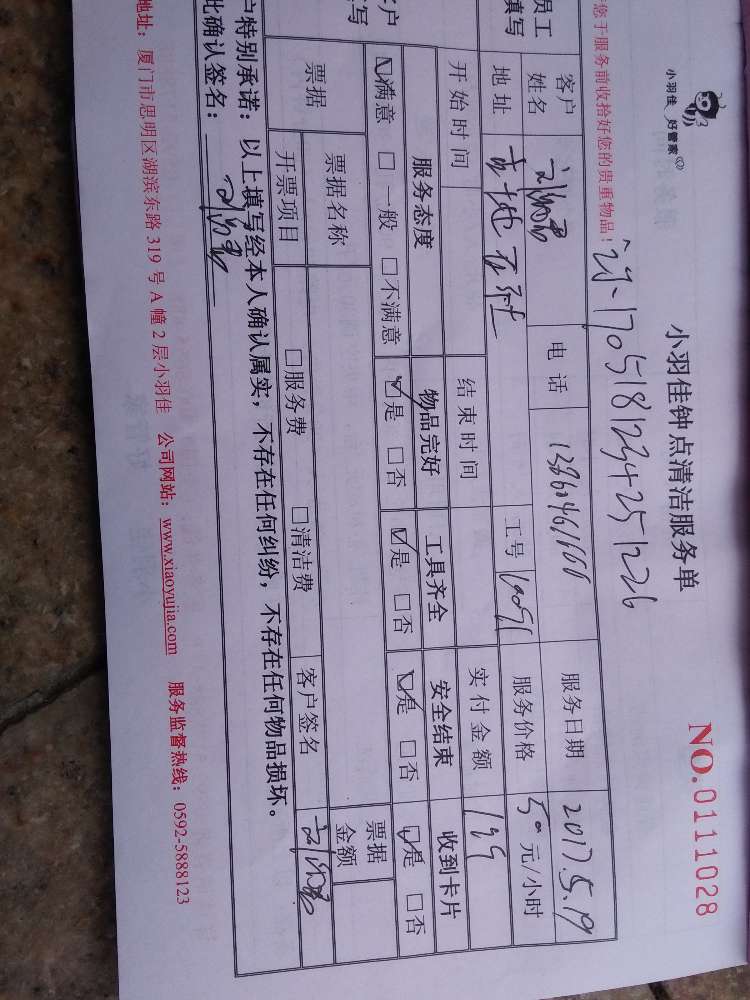 小羽佳 好管家
小羽佳钟点清洁服务单
NO.0111028
您于服务前收拾好您的贵重物品!
1705181234251226
员工
填写
客户
姓名
电话
服务日期
2017.5.19
地址
工号
服务价格
50元/小时
开始时间
结束时间
实付金额
199
客户
填写
服务态度
物品完好
工具齐全
安全结束
收到卡片
☑满意 □一般 □不满意
☑是 □否
☑是 □否
☑是 □否
☑是 □否
票据
票据名称
票据
金额
开票项目
□服务费 □清洁费
客户签名
户特别承诺:以上填写经本人确认属实,不存在任何纠纷,不存在任何物品损坏。
此确认签名:
地址:厦门市思明区湖滨东路 319 号 A 幢 2 层小羽佳 公司网站:www.xiaoyujia.com 服务监督热线:0592-5888123